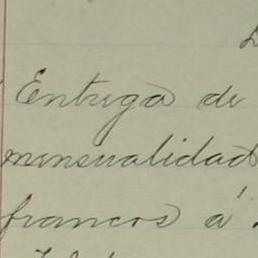 Entrega de
mensualidad
francos á